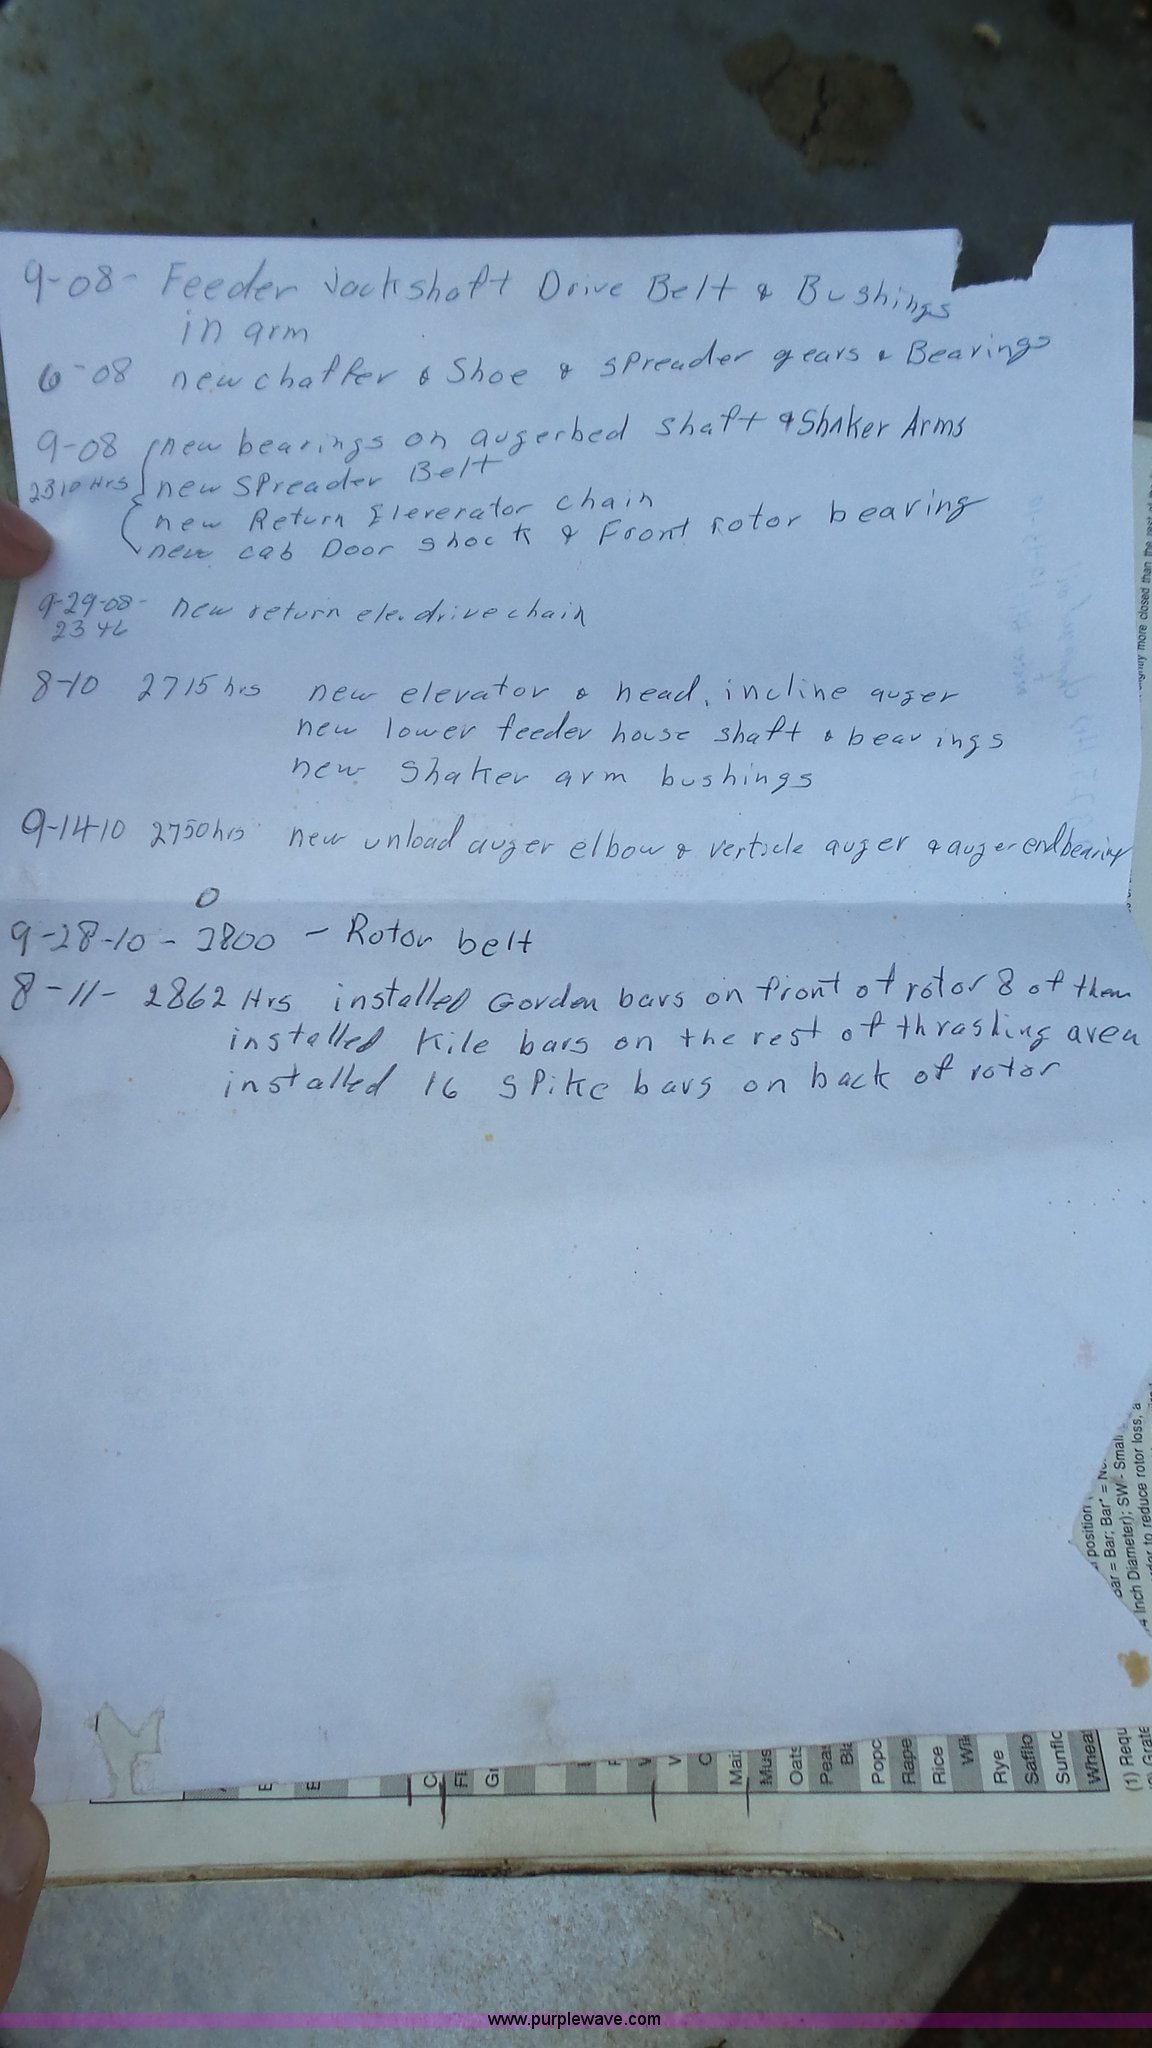 9-08- Feeder Jackshaft Drive Belt & Bushings
in arm
6-08 new chaffer & Shoe & spreader gears & Bearings
9-08 new bearings on augerbed shaft & Shaker Arms
2310 Hrs new Spreader Belt
new Return Eleverator chain
new cab Door shock & Front rotor bearing
9-29-08- new return ele. drive chain
2346
8-10 2715 hrs new elevator & head, incline auger
new lower feeder house shaft & bearings
new Shaker arm bushings
9-14-10 2750 hrs new unload auger elbow & verticle auger & auger end bearing
9-28-10 - 2800 - Rotor belt
8-11- 2862 Hrs installed Gorden bars on front of rotor 8 of them
installed Kile bars on the rest of thrashing area
installed 16 Spike bars on back of rotor
position
Bar = Bar; Bar* =
4 Inch Diameter); SW - Small
to reduce rotor loss, a
more closed than the rest of the
Oats
Popc
Rape
Rice
Rye
Safflo
Sunflo
Wheat
(1) Requ
www.purplewave.com